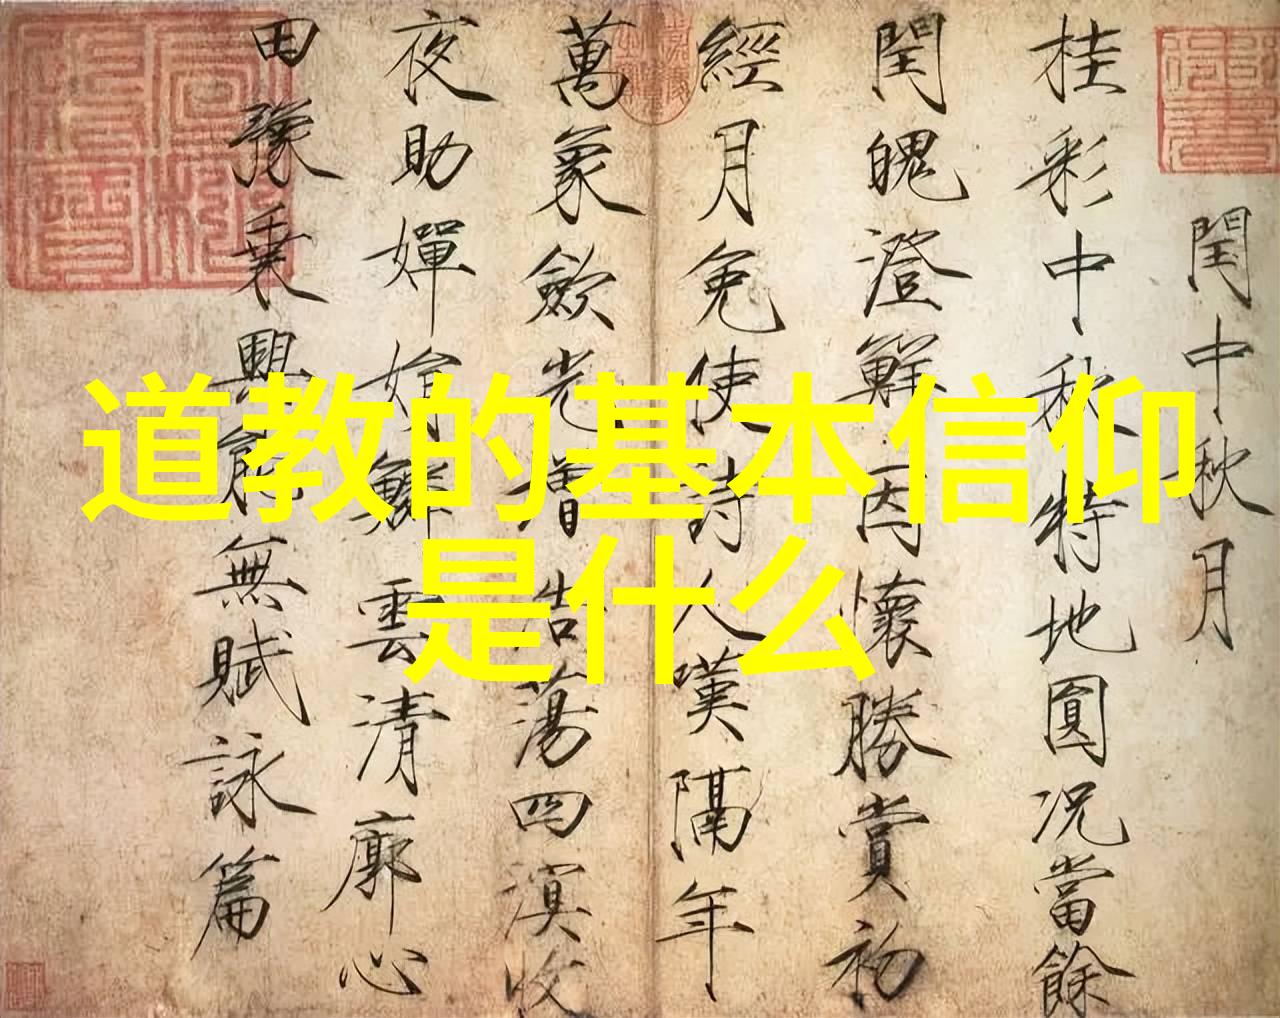 道教的基本信仰
是什么
閏中秋月
桂彩中秋特地圓況當餘
閏魄澄鮮因懷勝賞初
經月免使詩人嘆隔年
萬象歛光增浩蕩四溟收
夜助嬋娟鱗雲清廓心
田豫乗興能無賦詠篇